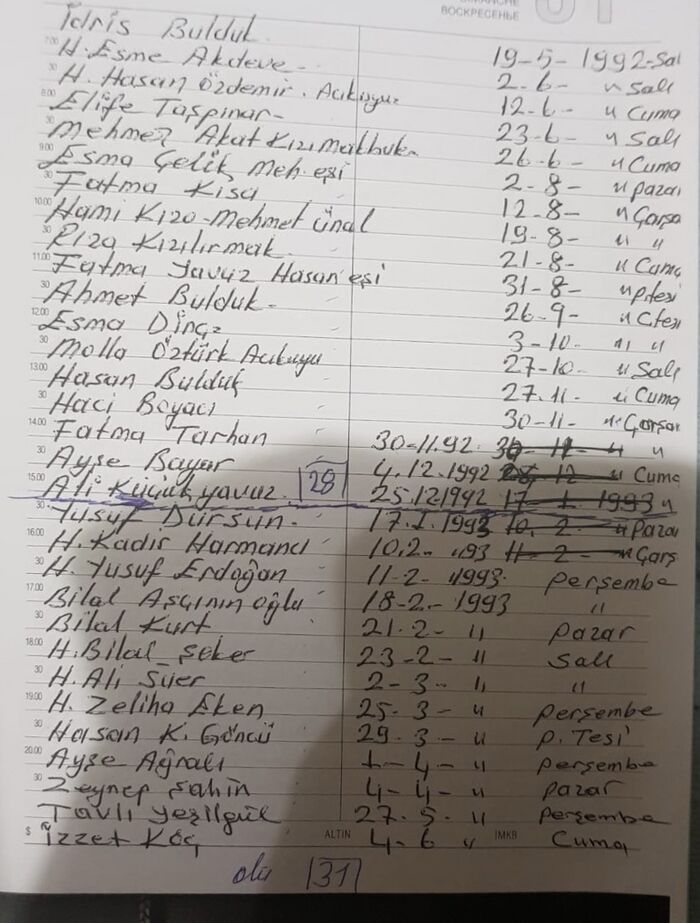 DIMANCHE
ВОСКРЕСЕНЬЕ
İdris Bulduk 19-5-1992-Salı
7.00 H. Esme Akdeve 2.6- " Salı
30 H. Hasan Özdemir. Acıkuyu 12.6- " Cuma
8.00 Elife Taşpınar- 23-6- " Salı
30 Mehmet Akat Kızı 26.6- " Cuma
9.00 Esma Çelik Meh. eşi 2-8- " Pazar
30 Fatma Kısa 12.8- " Çarşa
10.00 Hami Kızo-Mehmet Ünal 19-8- " "
30 Rıza Kızılırmak 21-8- " Cuma
11.00 Fatma Yavuz Hasan eşi 31-8- " P.tesi
30 Ahmet Bulduk- 26-9- " C.tesi
12.00 Esma Dinç 3-10- " "
30 Molla Öztürk Acıkuyu 27-10- " Salı
13.00 Hasan Bulduk 27.11- " Cuma
30 Hacı Boyacı 30-11- " Çarşa
14.00 Fatma Tarhan 30-11.92. 30-11- " "
30 Ayşe Bayar 4.12.1992 28 12 " Cuma
15.00 Ali Küçükyavuz 28 25.12.1992 17-1.1993 "
30 Yusuf Dursun. 17.1.1993 10.2- " Pazar
16.00 H. Kadir Harmancı 10.2- "93 11-2- " Çarş
30 H. Yusuf Erdoğan 11-2- "1993 Perşembe
17.00 Bilal Aşçının oğlu 18-2-1993 "
30 Bilal Kurt 21.2- " Pazar
18.00 H. Bilal Şeker 23-2- " Salı
30 H. Ali Süer 2-3- " "
19.00 H. Zeliha Eken 25-3- " Perşembe
30 Hasan K. Göncü 29.3- " P. Tesi
20.00 Ayşe Ağralı 1-4- " Perşembe
30 Zeynep Şahin 4-4- " Pazar
Tavlı Yeşilgül 27.5. " Perşembe
$ İzzet Koç ALTIN 4-6 " İMKB Cuma
ölü 31